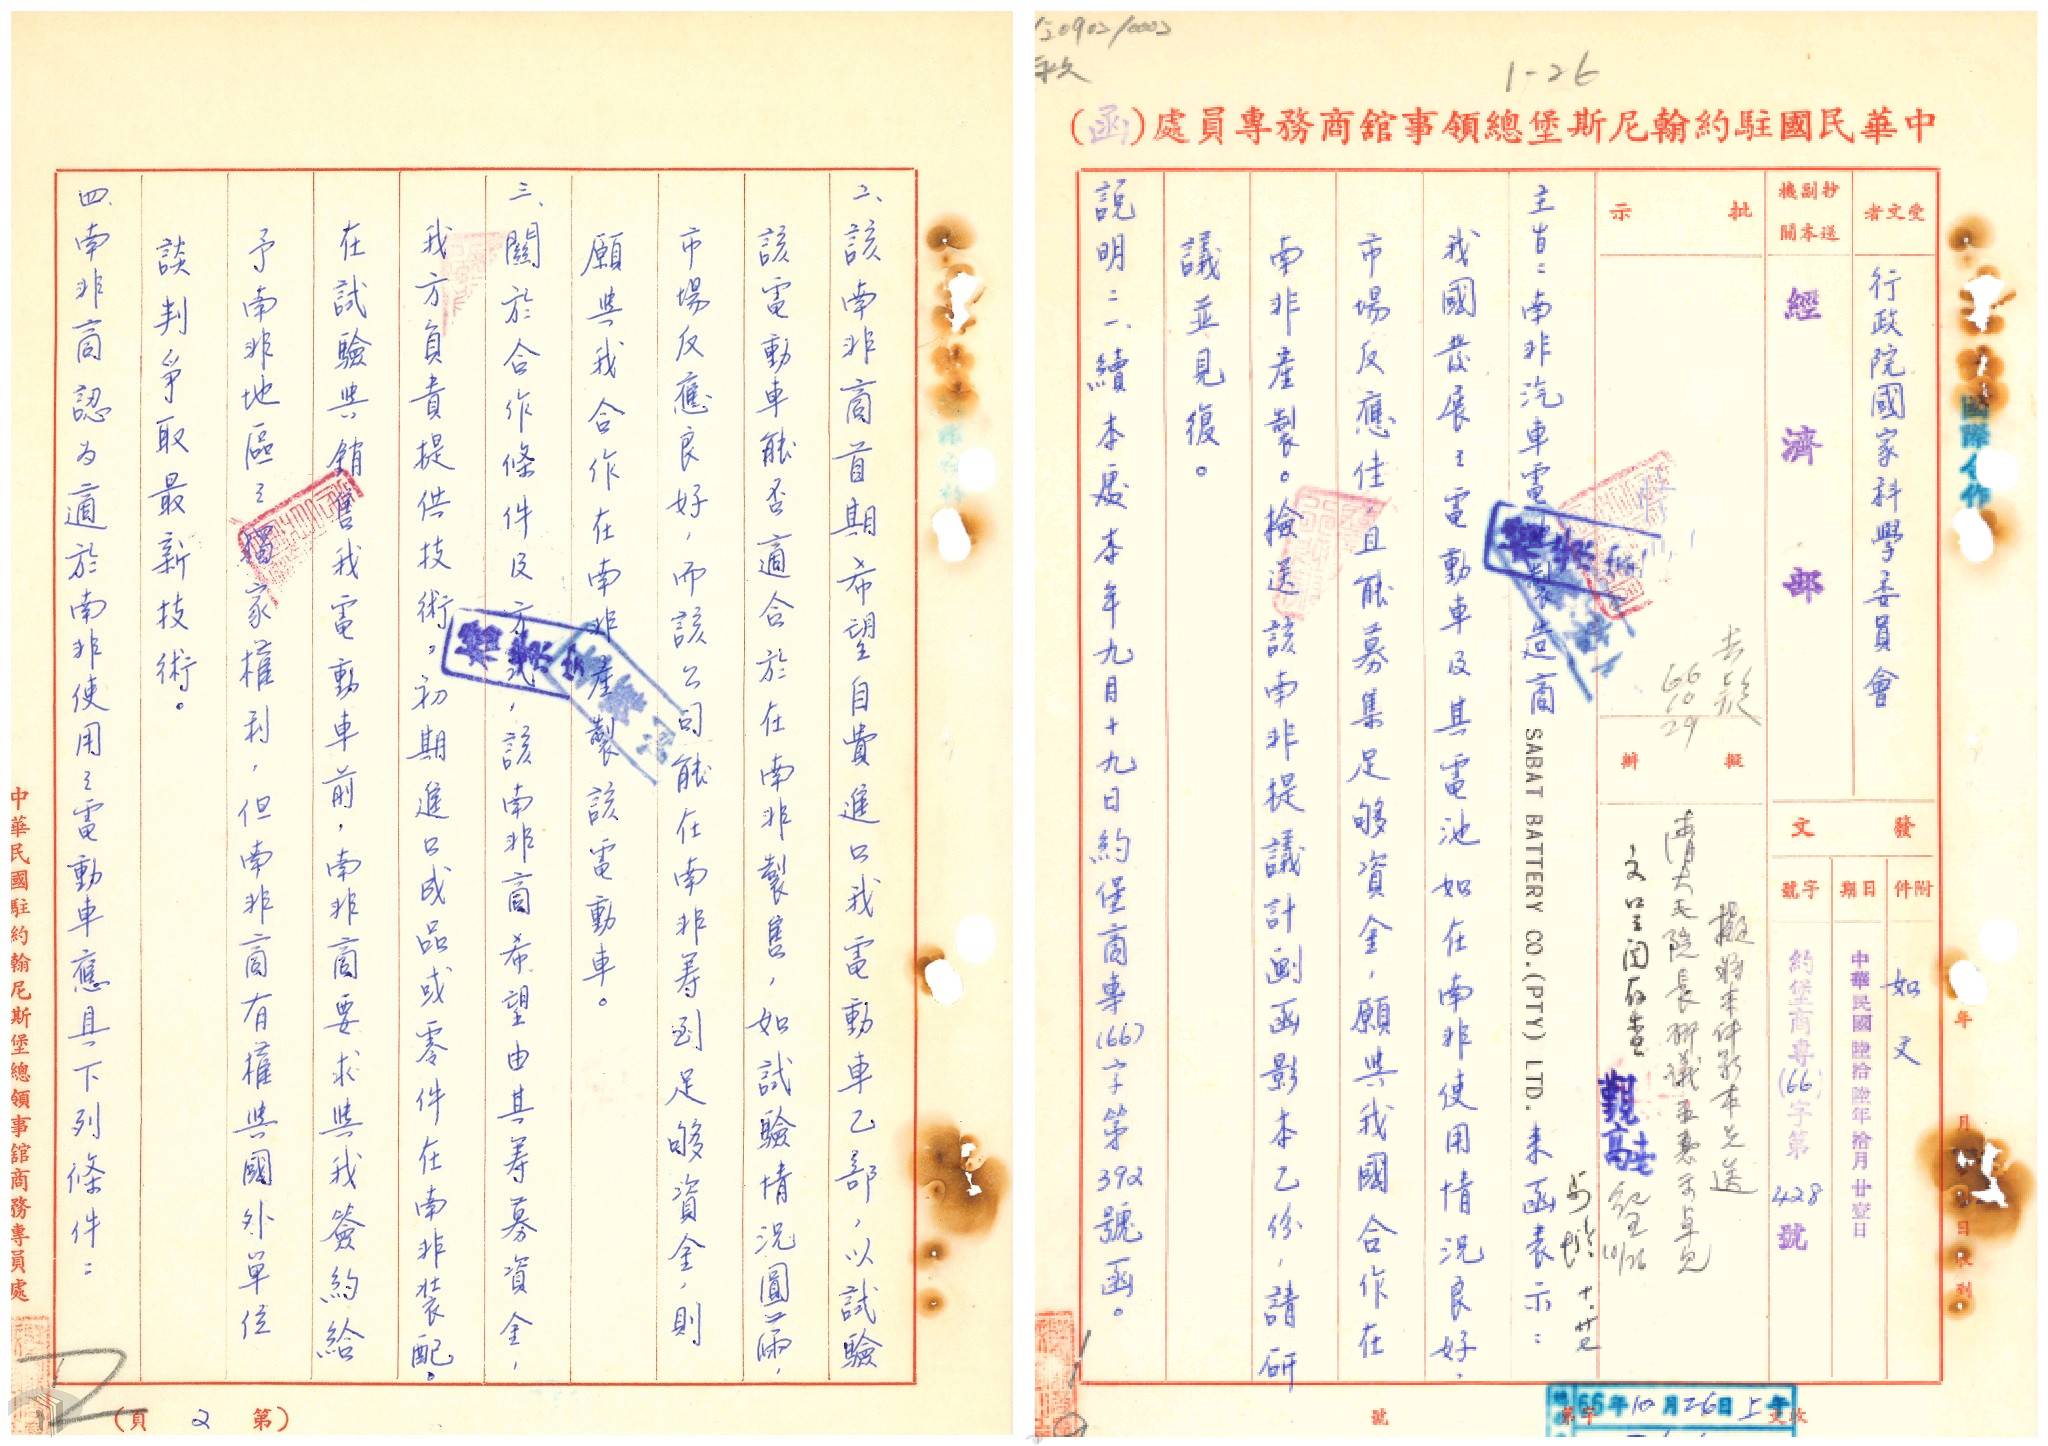 1-26
中華民國駐約翰尼斯堡總領事舘商務專員處(函)
受文者
行政院國家科學委員會
抄副機
送本關
經濟部
發文
附件
如文
日期
中華民國陸拾陸年拾月廿壹日
字號
約堡商專(66)字第428號
批示
66
10
29
擬辦
擬將來件影本乙送
主旨：南非汽車電池製造商SABAT BATTERY CO.(PTY) LTD.來函表示：
我國發展之電動車及其電池如在南非使用情況良好，
市場反應佳，且能募集足够資金，願與我國合作在
南非產製。檢送該南非提議計劃函影本乙份，請研
議並見復。
說明：一、續本處本年九月十九日約堡商專(66)字第392號函。
國際合作
66年10月26日上午
收文
字第
號
二、該南非商首期希望自費進口我電動車乙部，以試驗
該電動車能否適合於在南非製售，如試驗情況圓滿，
市場反應良好，而該公司能在南非籌到足够資金，則
願與我合作在南非產製該電動車。
三、關於合作條件及方式，該南非商希望由其籌募資金，
我方負責提供技術，初期進口成品或零件在南非裝配。
在試驗與銷售我電動車前，南非商要求與我簽約給
予南非地區之獨家權利，但南非商有權與國外單位
談判爭取最新技術。
四、南非商認为適於南非使用之電動車應具下列條件：
中華民國駐約翰尼斯堡總領事舘商務專員處
(第2頁)